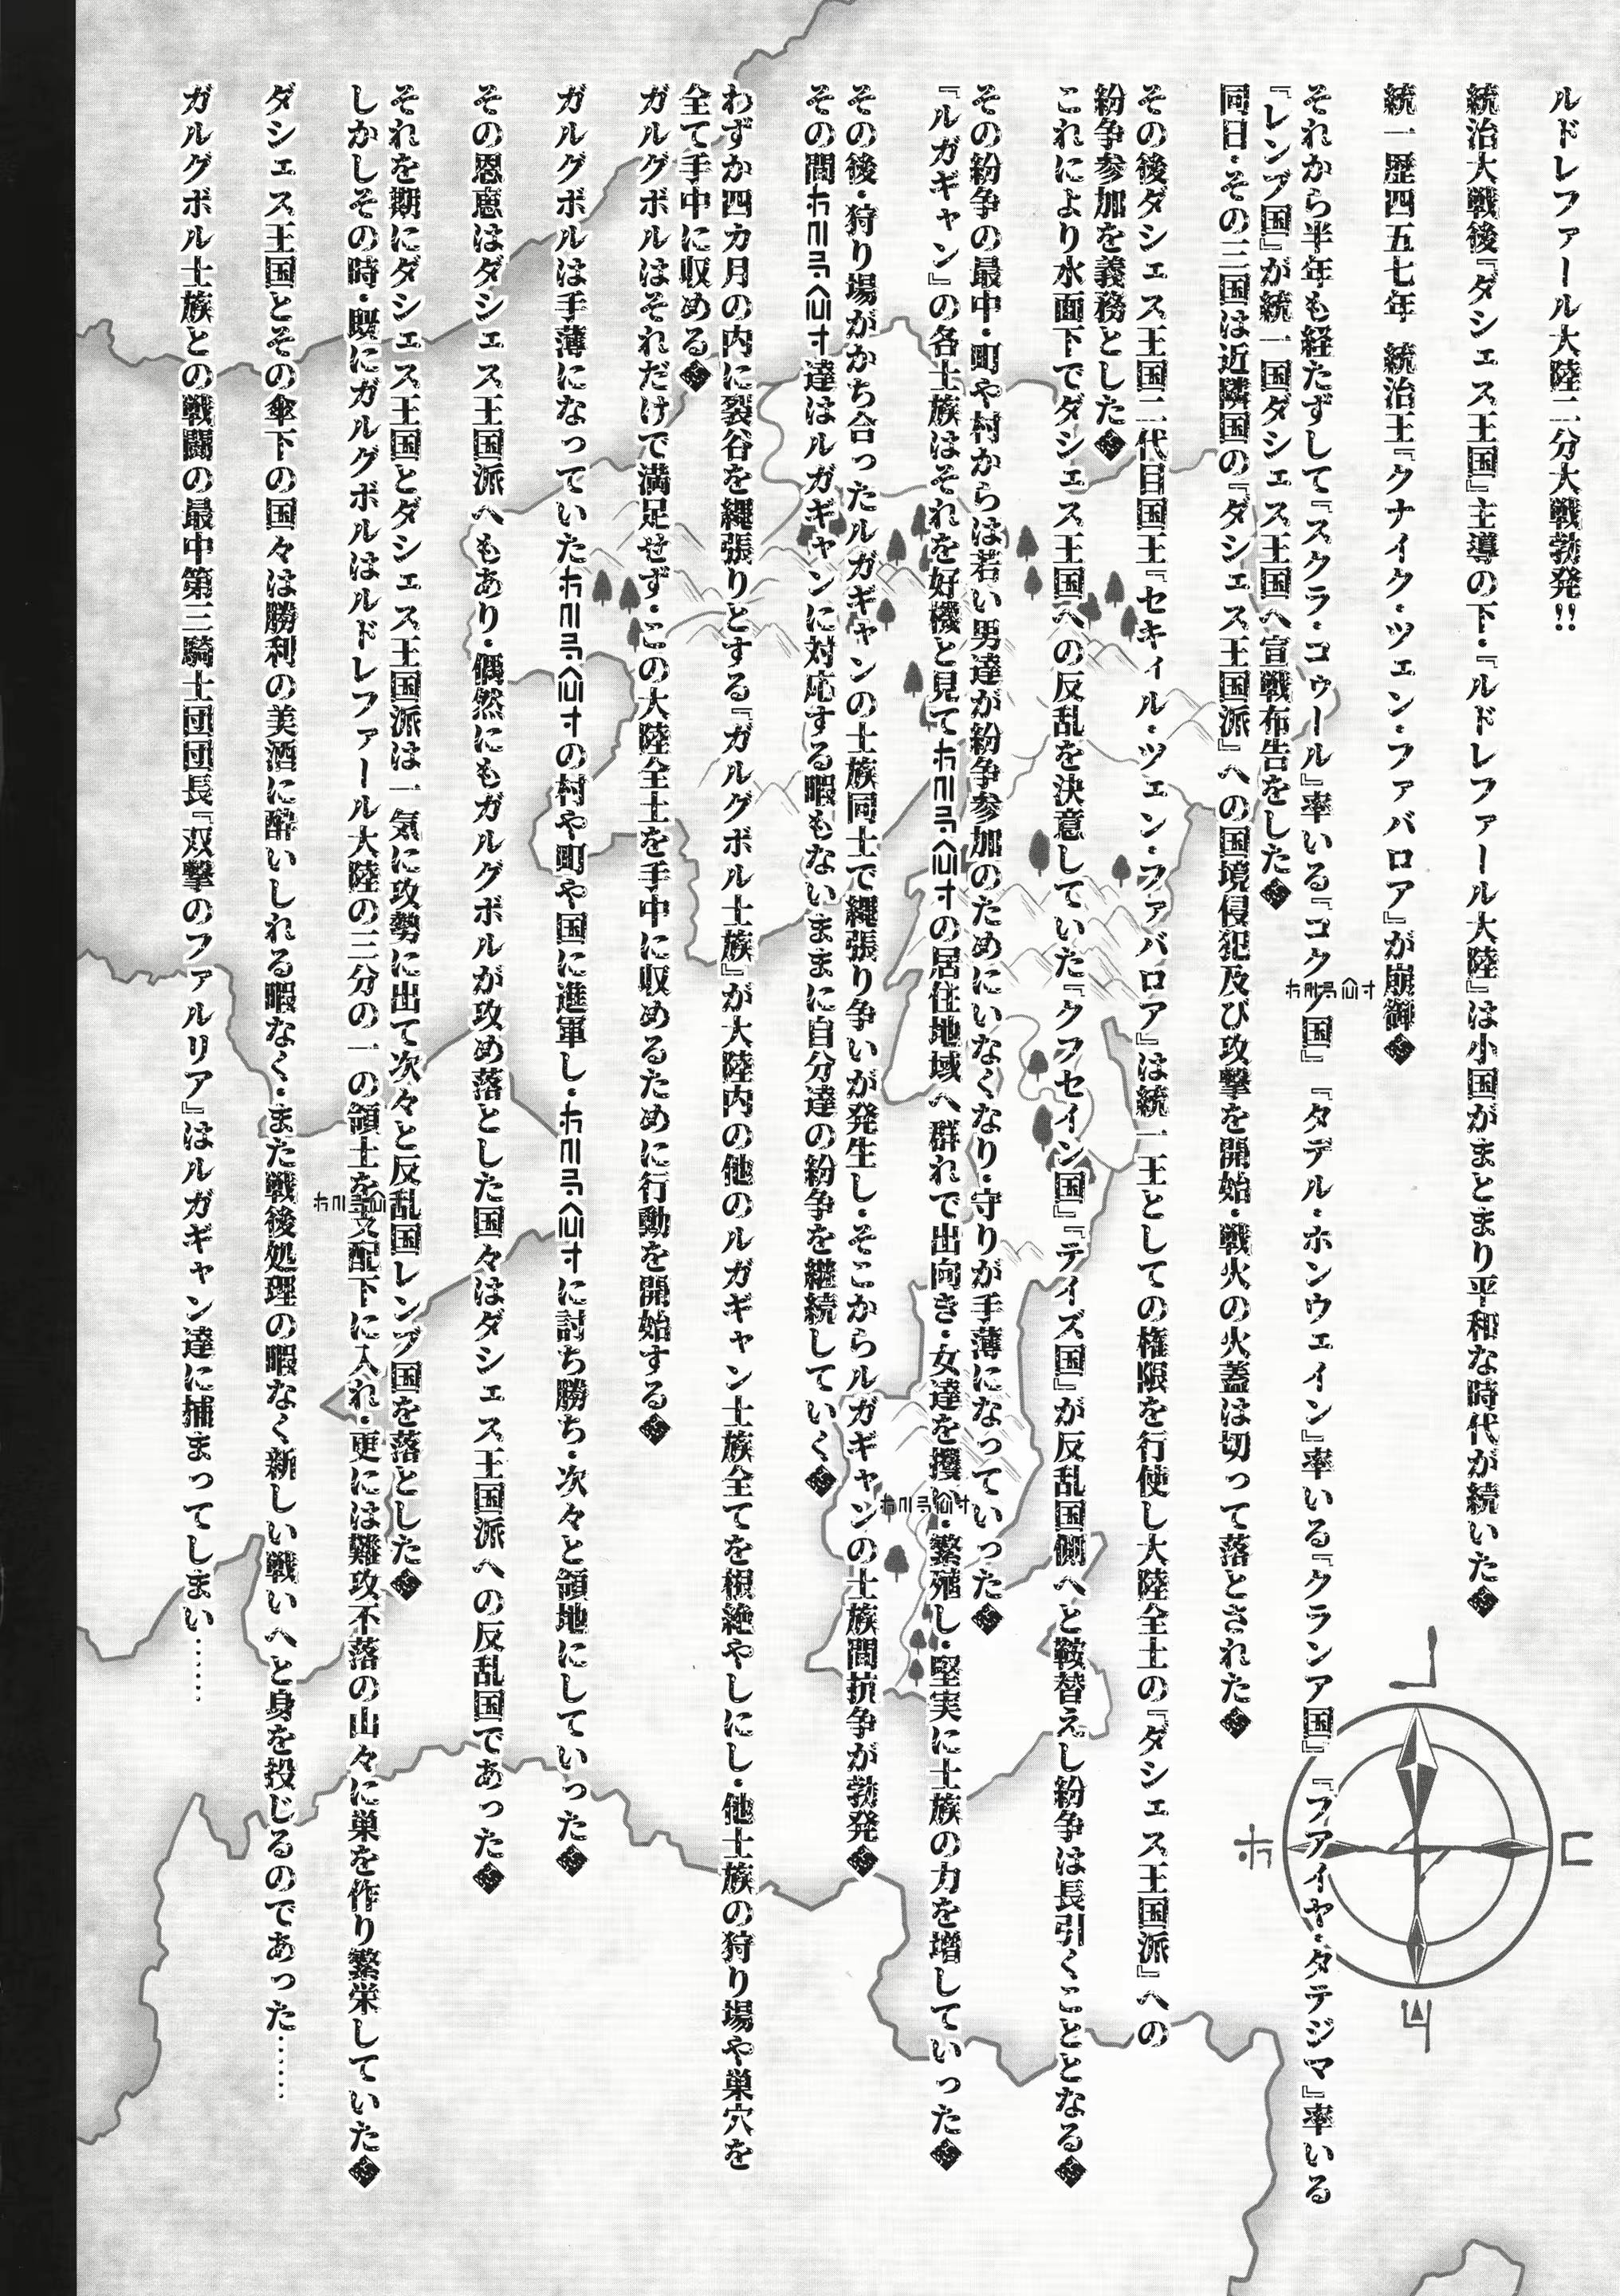 ルドレファール大陸二分大戦勃発!!
統治大戦後『ダシェス王国』主導の下・『ルドレファール大陸』は小国がまとまり平和な時代が続いた◆
統一歴四五七年 統治王『クナイク・ツェン・ファバロア』が崩御◆
それから半年も経たずして『スクラ・コゥール』率いる『コクク国』『タデル・ホンウェイン』率いる『クランア国』『ファイヤ・タテジマ』率いる
『レンブ国』が統一国ダシェス王国へ宣戦布告をした◆
同日・その三国は近隣国の『ダシェス王国派』への国境侵犯及び攻撃を開始・戦火の火蓋は切って落とされた◆
その後ダシェス王国二代目国王『セキィル・ツェン・ファバロア』は統一王としての権限を行使し大陸全土の『ダシェス王国派』への
紛争参加を義務とした◆
これにより水面下でダシェス王国への反乱を決意していた『クフセイン国』『テイズ国』が反乱国側へと鞍替えし紛争は長引くこととなる◆
その紛争の最中・町や村からは若い男達が紛争参加のためにいなくなり・守りが手薄になっていった◆
『ルガギャン』の各士族はそれを好機と見ての居住地域へ群れで出向き・女達を攫い・繁殖し・堅実に士族の力を増していった◆
その後・狩り場がかち合ったルガギャンの士族同士で縄張り争いが発生し・そこからルガギャンの士族間抗争が勃発◆
その間達はルガギャンに対応する暇もないままに自分達の紛争を継続していく◆
わずか四カ月の内に裂谷を縄張りとする『ガルグボル士族』が大陸内の他のルガギャン士族全てを根絶やしにし・他士族の狩り場や巣穴を
全て手中に収める◆
ガルグボルはそれだけで満足せず・この大陸全土を手中に収めるために行動を開始する◆
ガルグボルは手薄になっていたの村や町や国に進軍し・に討ち勝ち・次々と領地にしていった◆
その恩恵はダシェス王国派へもあり・偶然にもガルグボルが攻め落とした国々はダシェス王国派への反乱国であった◆
それを期にダシェス王国とダシェス王国派は一気に攻勢に出て次々と反乱国レンブ国を落とした◆
しかしその時・既にガルグボルはルドレファール大陸の三分の一の領土を支配下に入れ・更には難攻不落の山々に巣を作り繁栄していた◆
ダシェス王国とその傘下の国々は勝利の美酒に酔いしれる暇なく・また戦後処理の暇なく新しい戦いへと身を投じるのであった……
ガルグボル士族との戦闘の最中第三騎士団団長『双撃のファルリア』はルガギャン達に捕まってしまい……